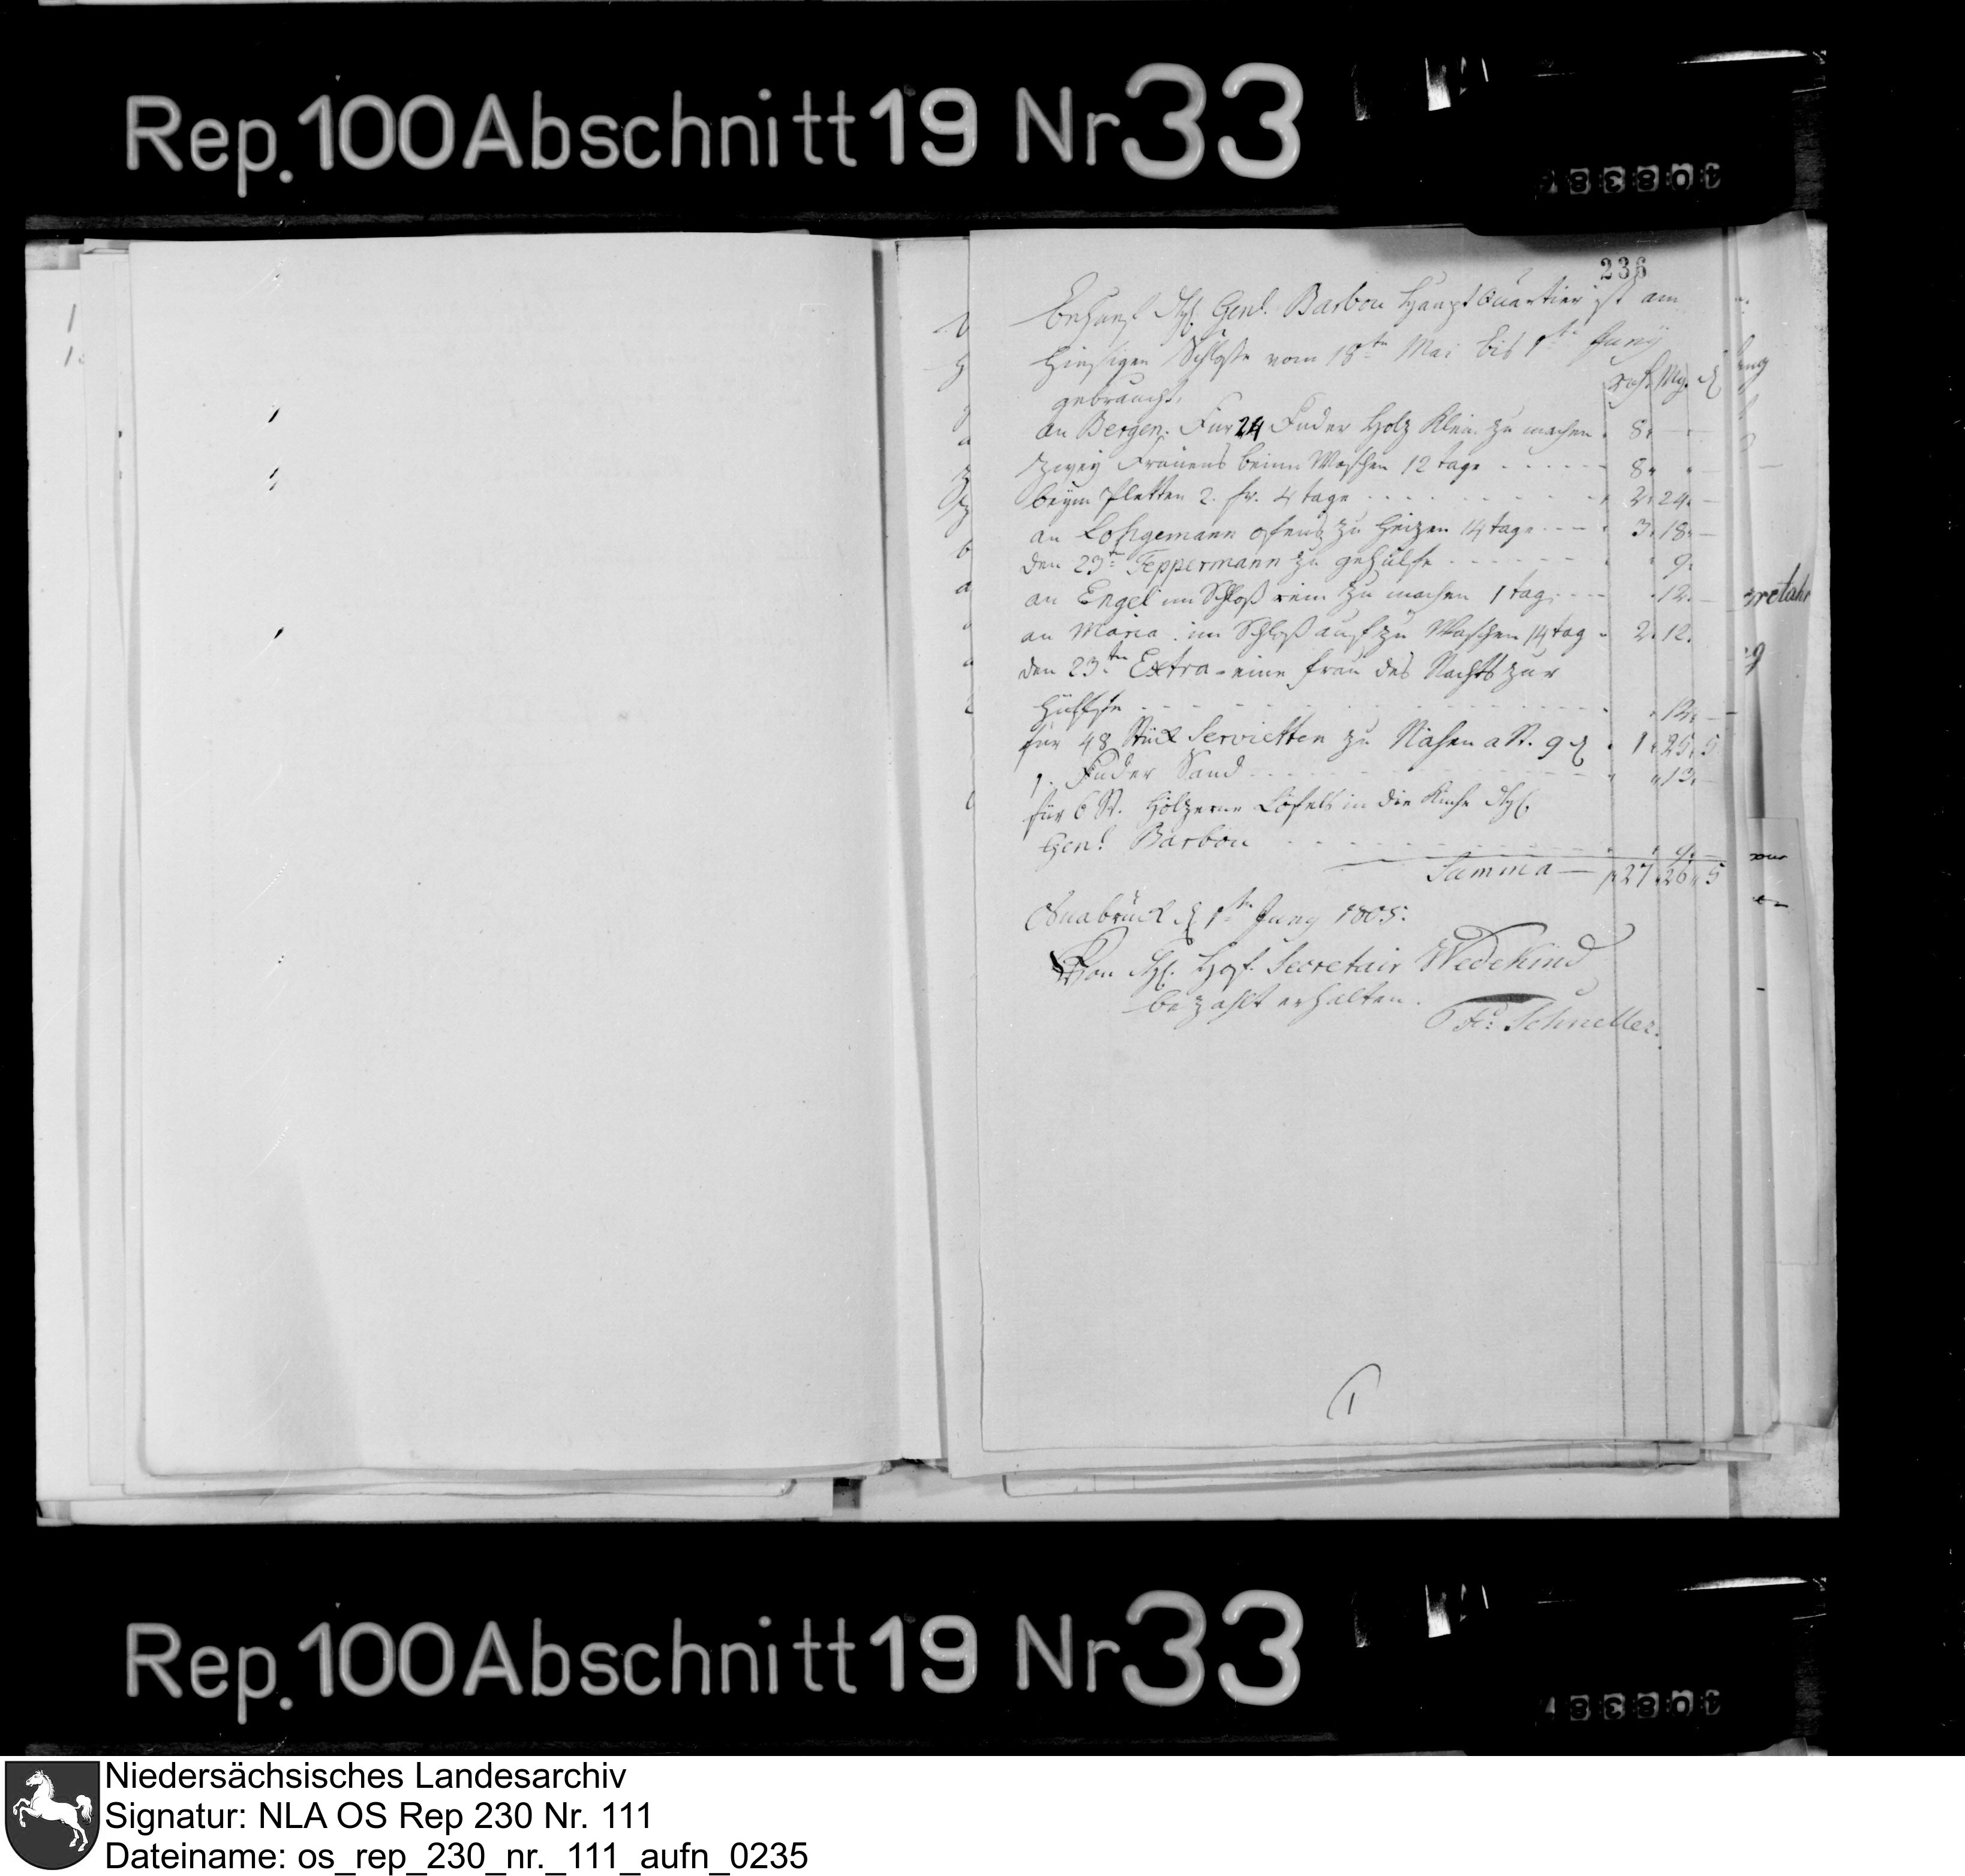 Rep. 100 Abschnitt 19 Nr 33
236
Behuef Genl. Barbou Haupt Quartier ist am
hiesigen Schloße vom 18ten Mai bis 1ten Juny
gebraucht.
Rth. Mg. ₰
an Bergen. Für 24 Fuder Holz Klein zu machen 8 " —
Zwey Frauens beim Waschen 12 tage 8 " " —
beym Pletten 2. fr. 4 tage 2. 24. —
an Lohgemann ofens zu heizen 14 tage 3. 18. —
den 23ten Teppermann zu gehülfe " 9.
an Engel im Schloß rein zu machen 1 tag " 12. —
an Maria im Schloß auf zu Waschen 14 tag 2. 12.
den 23ten Extra eine frau des Nachts zur
hülffe " 12. —
für 48 Stück Servietten zu Nähen a St. 9 ₰ 1. 25. 5
1. Fuder Sand " 13. —
für 6 St. hölzerne Löfels in die Küche
Genl. Barbou " 4. —
Summa — 27. 26. 5
Osnabrück d 1ten Juny 1805.
Von Secretair Wedekind
bezahlt erhalten.
Fr: Schneller.
Rep. 100 Abschnitt 19 Nr 33
Niedersächsisches Landesarchiv
Signatur: NLA OS Rep 230 Nr. 111
Dateiname: os_rep_230_nr._111_aufn_0235